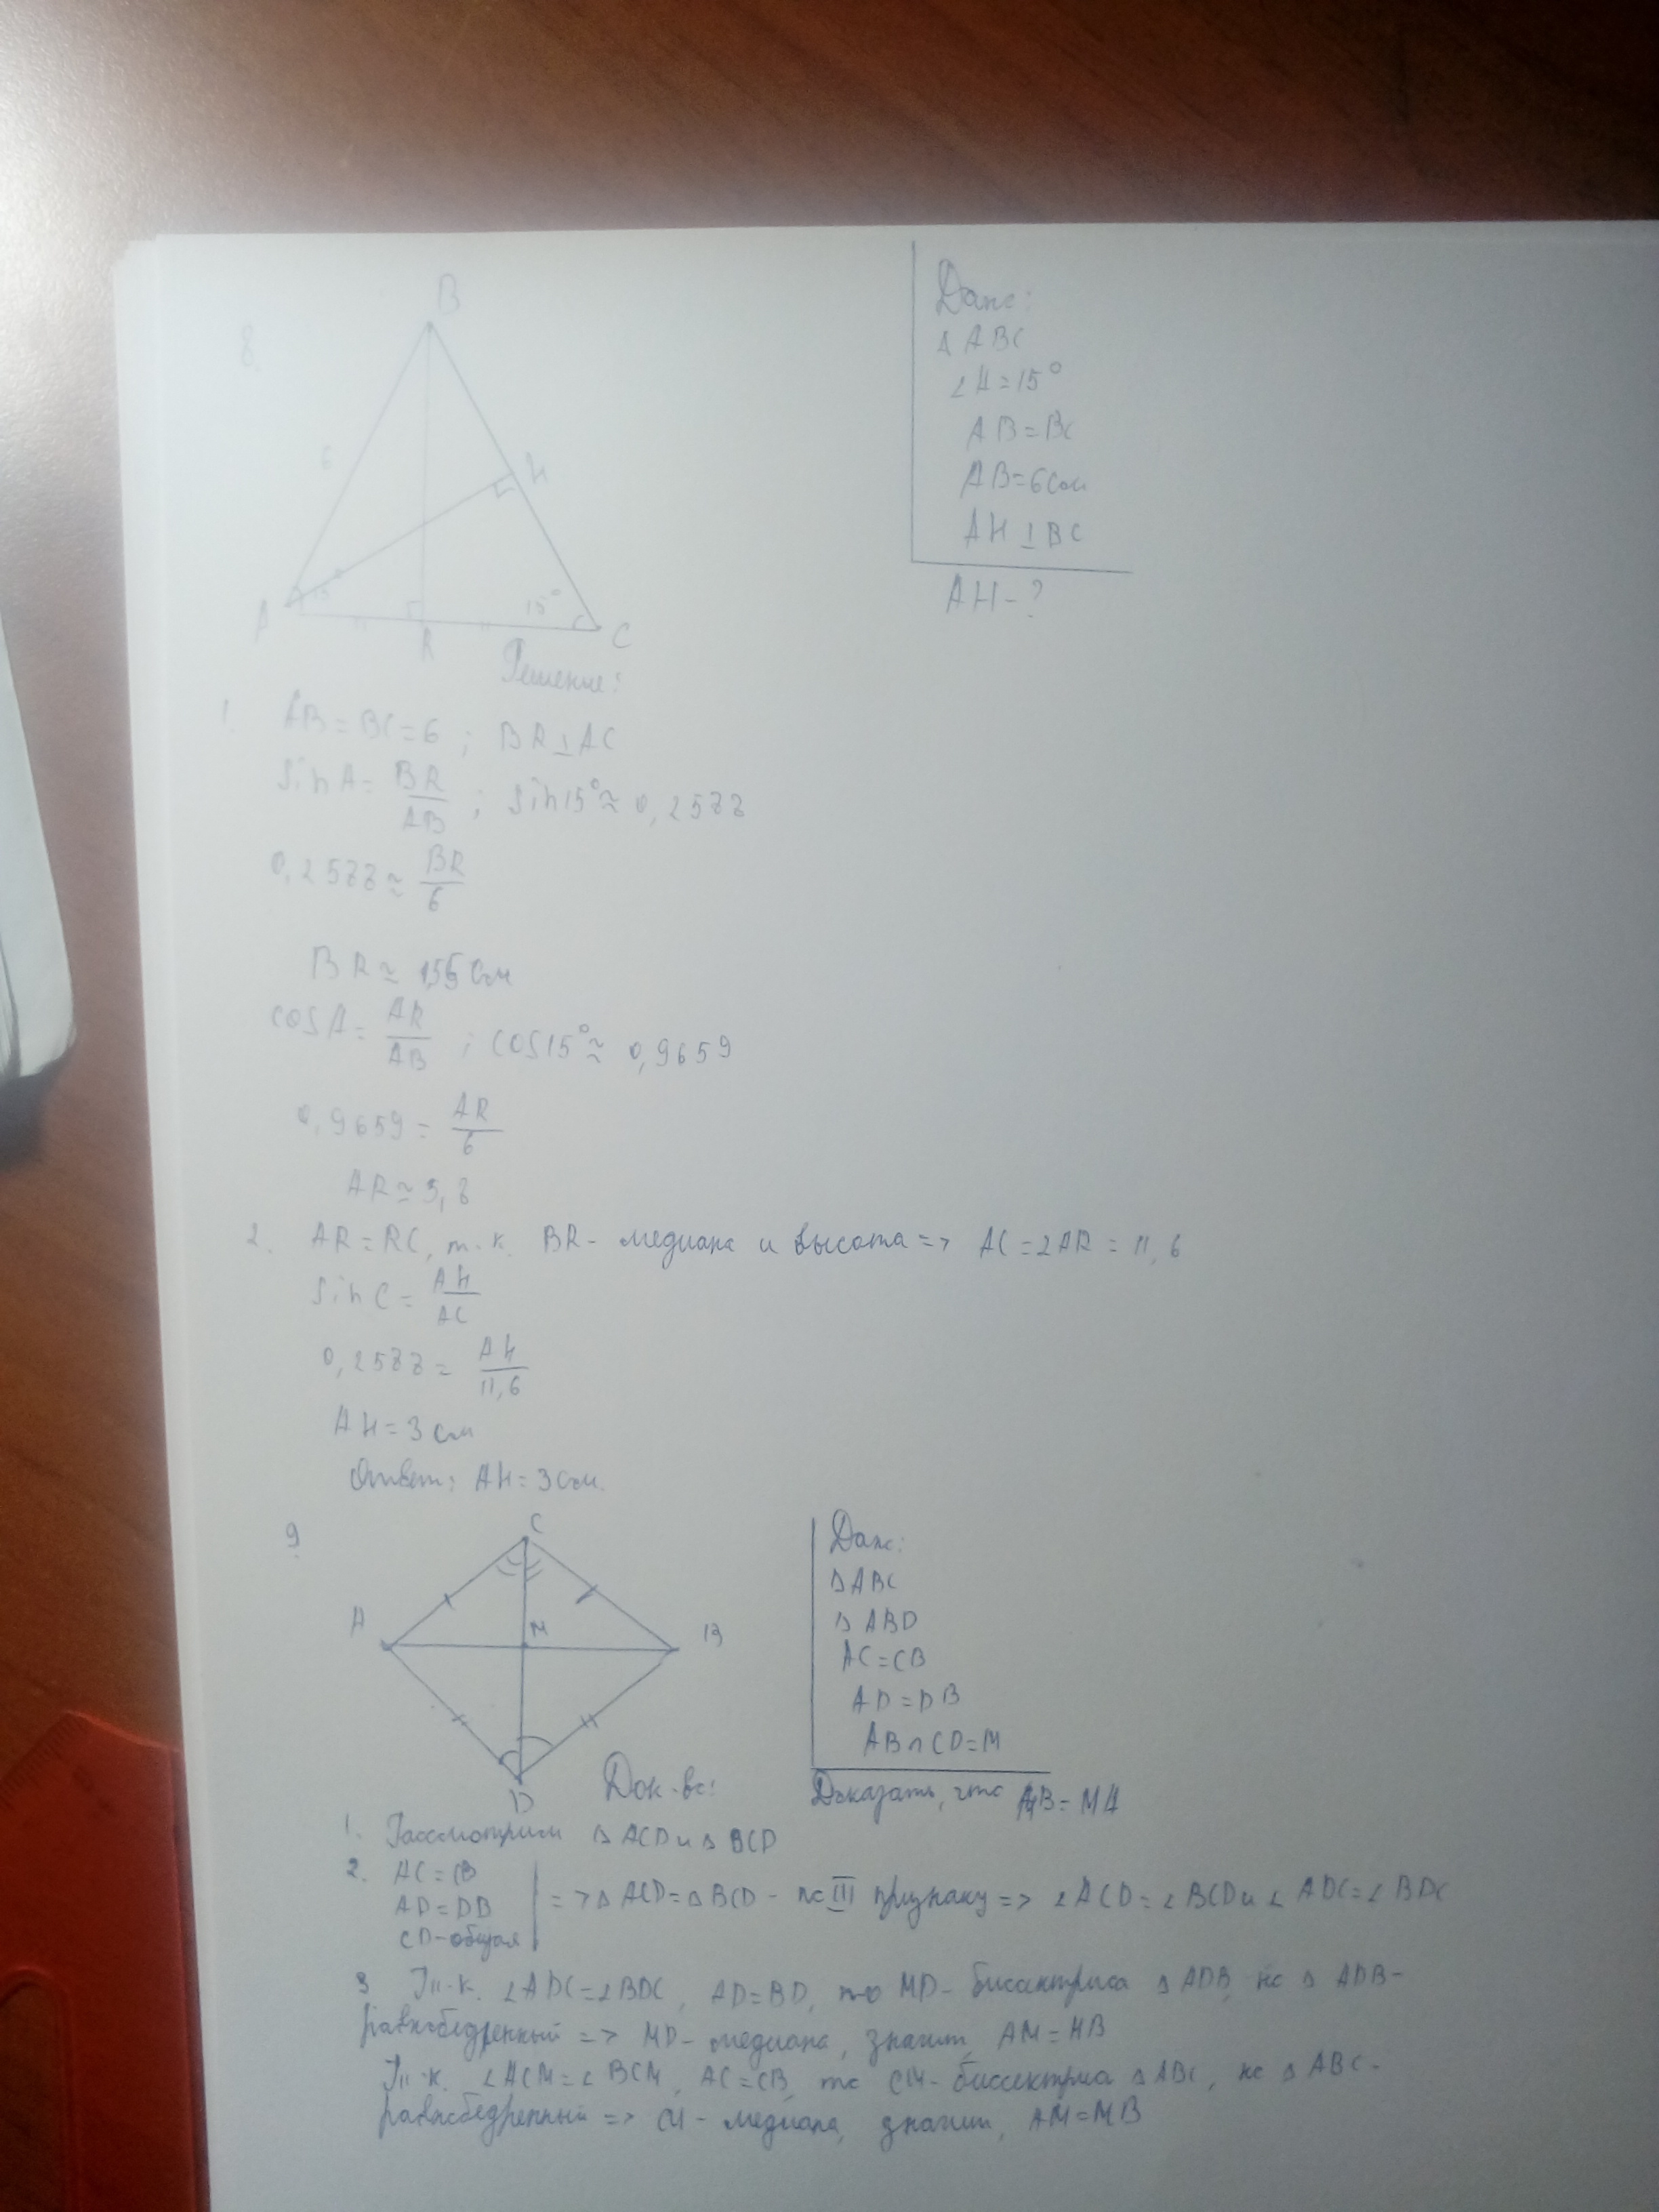 8.
B
6
H
A
15
15°
R
C
Дано:
Δ ABC
∠A=15°
AB=BC
AB=6см
AH⊥BC
AH-?
Решение:
1. AB=BC=6 ; BR⊥AC
sin A= BR/AB ; sin15°≈0,2588
0,2588≈ BR/6
BR≈ 1,55 см
cos A= AR/AB ; cos15°≈ 0,9659
0,9659= AR/6
AR≈5,8
2. AR=RC, т.к. BR- медиана и высота => AC=2AR=11,6
sin C= AH/AC
0,2588= AH/11,6
AH=3 см
Ответ: AH=3см.
9
C
A
M
B
D
Дано:
Δ ABC
Δ ABD
AC=CB
AD=DB
AB∩CD=M
Док-во:
Доказать, что MB=MA
1. Рассмотрим Δ ACD и Δ BCD
2. AC=CB
AD=DB
CD-общая
=> Δ ACD=Δ BCD - по III признаку => ∠ACD=∠BCD и ∠ADC=∠BDC
3 Т.к. ∠ADC=∠BDC, AD=BD, то MD- бисектриса Δ ADB, но Δ ADB-
равнобедренный => MD- медиана, значит, AM=MB
Т.к. ∠ACM=∠BCM, AC=CB, то CM- биссектриса Δ ABC, но Δ ABC-
равнобедренный => CM- медиана, значит, AM=MB